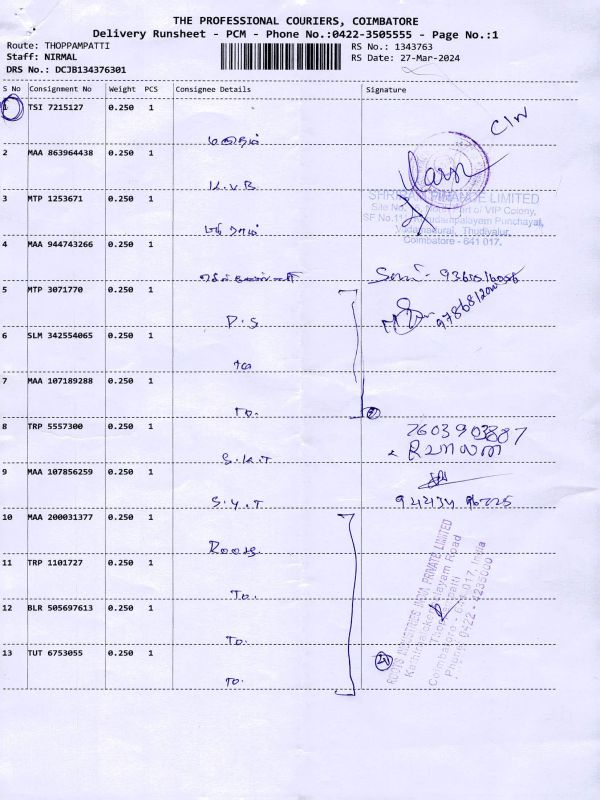 THE PROFESSIONAL COURIERS, COIMBATORE
Delivery Runsheet - PCM - Phone No.:0422-3505555 - Page No.:1
Route: THOPPAMPATTI
Staff: NIRMAL
DRS No.: DCJB134376301
RS No.: 1343763
RS Date: 27-Mar-2024
S No Consignment No Weight PCS Consignee Details Signature
1 TSI 7215127 0.250 1
C/W
2 MAA 863964438 0.250 1
K.V.B
3 MTP 1253671 0.250 1
FINANCE LIMITED
VIP Colony,
Panchayat,
Thudiyalur,
Coimbatore - 641 017.
4 MAA 944743266 0.250 1
5 MTP 3071770 0.250 1
P.S
9786812011
6 SLM 342554065 0.250 1
To
7 MAA 107189288 0.250 1
To.
8 TRP 5557300 0.250 1
S.K.T
9 MAA 107856259 0.250 1
S.Y.T
94434 96225
10 MAA 200031377 0.250 1
Roots.
11 TRP 1101727 0.250 1
To.
12 BLR 505697613 0.250 1
To.
13 TUT 6753055 0.250 1
To.
ROOTS INDUSTRIES INDIA PRIVATE LIMITED
Road
Thoppampatti
Coimbatore - 641 017, India
Phone: 0422 - 4235000